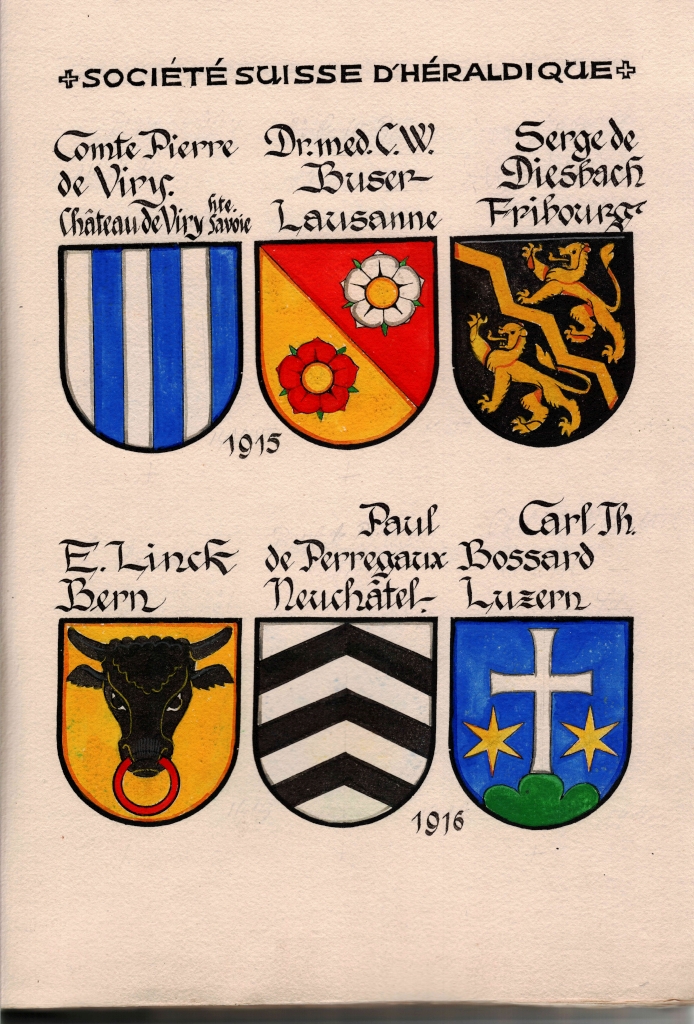 ✠SOCIÉTÉ SUISSE D'HÉRALDIQUE✠
Comte Pierre
de Viry.
Château de Viry hte. Savoie
Dr. med. C. W.
Buser-
Lausanne
Serge de
Diesbach
Fribourg
1915
E. Linck
Bern
Paul
de Perregaux
Neuchâtel-
Carl Th.
Bossard
Luzern
1916